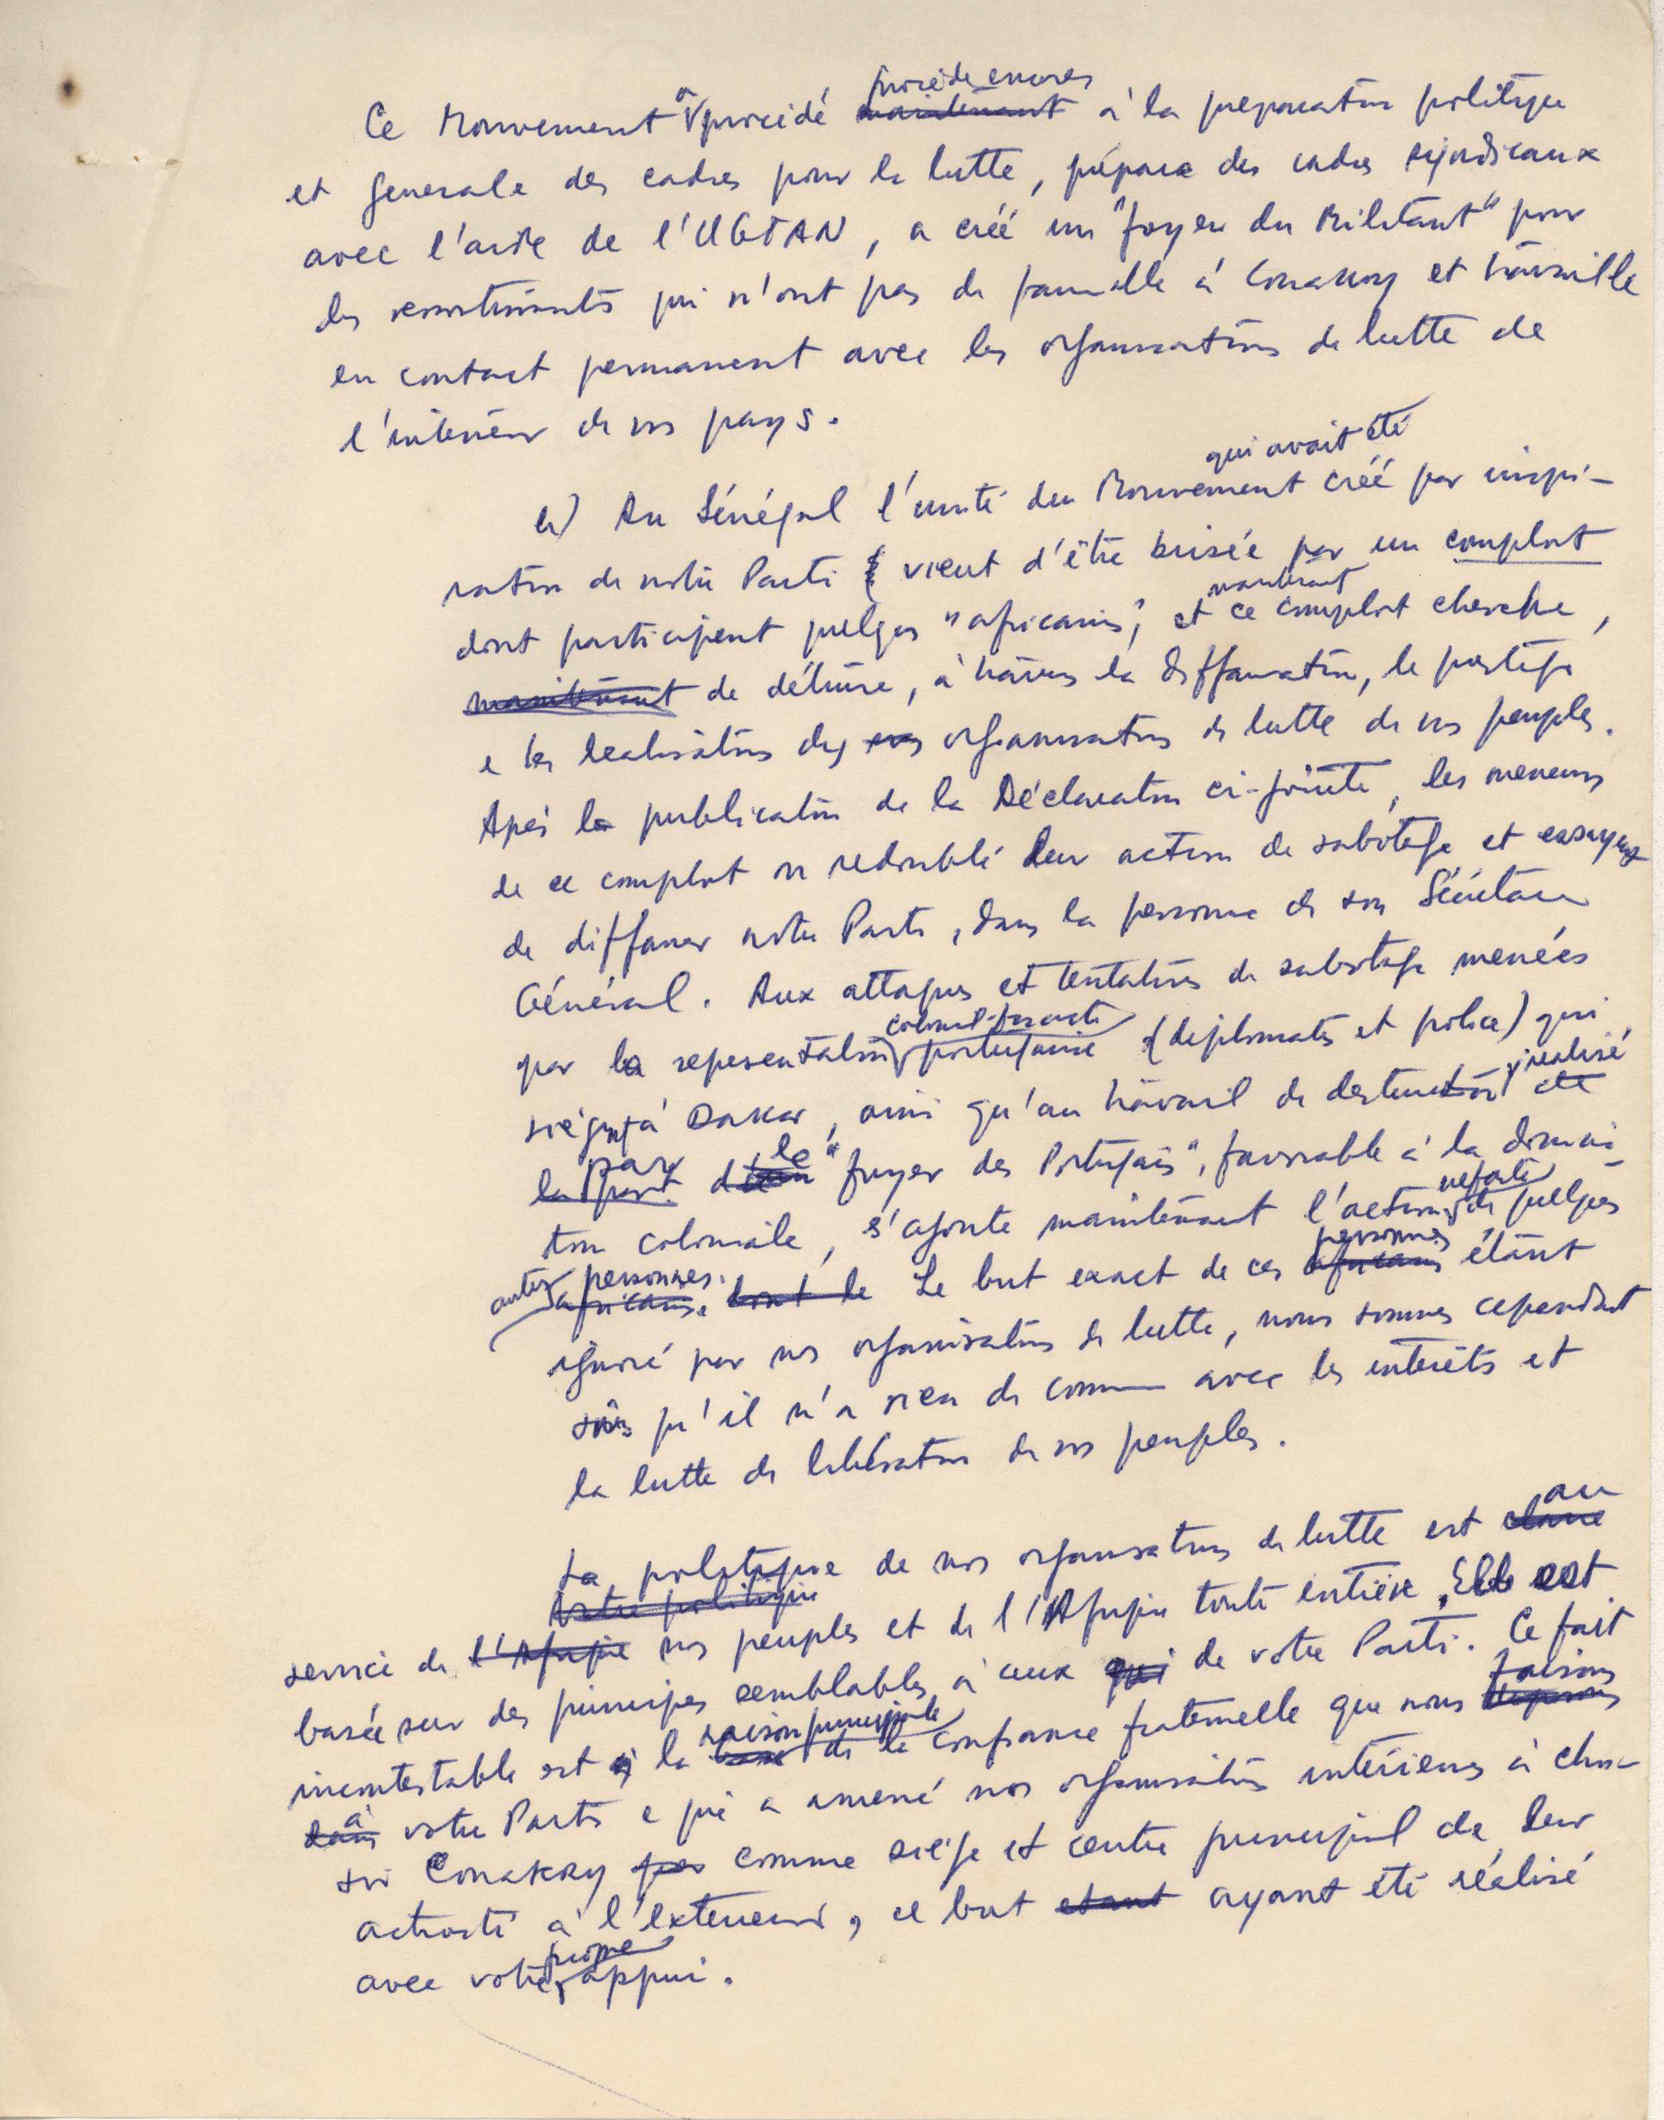 Ce Mouvement a procédé procède encore maintenant à la preparation politique
et generale des cadres pour la lutte, prépare des cadres syndicaux
avec l'aide de l'UGTAN, a créé un "foyer du Militant" pour
des ressortissants qui n'ont pas de famille à Conakry et travaille
en contact permanent avec les organisations de lutte de
l'intérieur de nos pays.
b) Au Sénégal l'unité du Mouvement qui avait été créé par inspi-
ration de notre Parti vient d'être brisée par un complot
dont participent quelques "africains", et maintenant ce complot cherche,
maintenant de détruire, à travers la diffamation, le prestige
e les realisations des nos organisations de lutte de nos peuples.
Après la publication de la Déclaration ci-jointe, les meneurs
de ce complot on redoublé leur action de sabotage et essayent
de diffamer notre Parti, dans la personne de son Sécrétaire
Général. Aux attaques et tentatives de sabotage menées
par la representation colonial-fasciste portugaise (diplomates et police) qui
siègent à Dakar, ainsi qu'au travail de destruction realisé
la part par le "foyer des Portugais", favorable à la domina-
tion coloniale, s'ajoute maintenant l'action nefaste de quelques
autres personnes. africains. dont le Le but exact de ces personnes africains étant
ignoré par nos organisations de lutte, nous sommes cependant
sûrs qu'il n'a rien de commun avec les interêts et
la lutte de libération de nos peuples.
La politique de nos organisations de lutte est au
Notre politique
service de l'Afrique nos peuples et de l'Afrique toute entière. Elle est
basée sur des principes semblables à ceux qui de votre Parti. Ce fait
incontestable est la raison principale base de la confiance fraternelle que nous faisons
dans à votre Parti e qui a amené nos organisations intérieures à choi-
sir Conakry comme siège et centre principal de leur
activité à l'exterieur, ce but etant ayant été réalisé
avec votre propre appui.